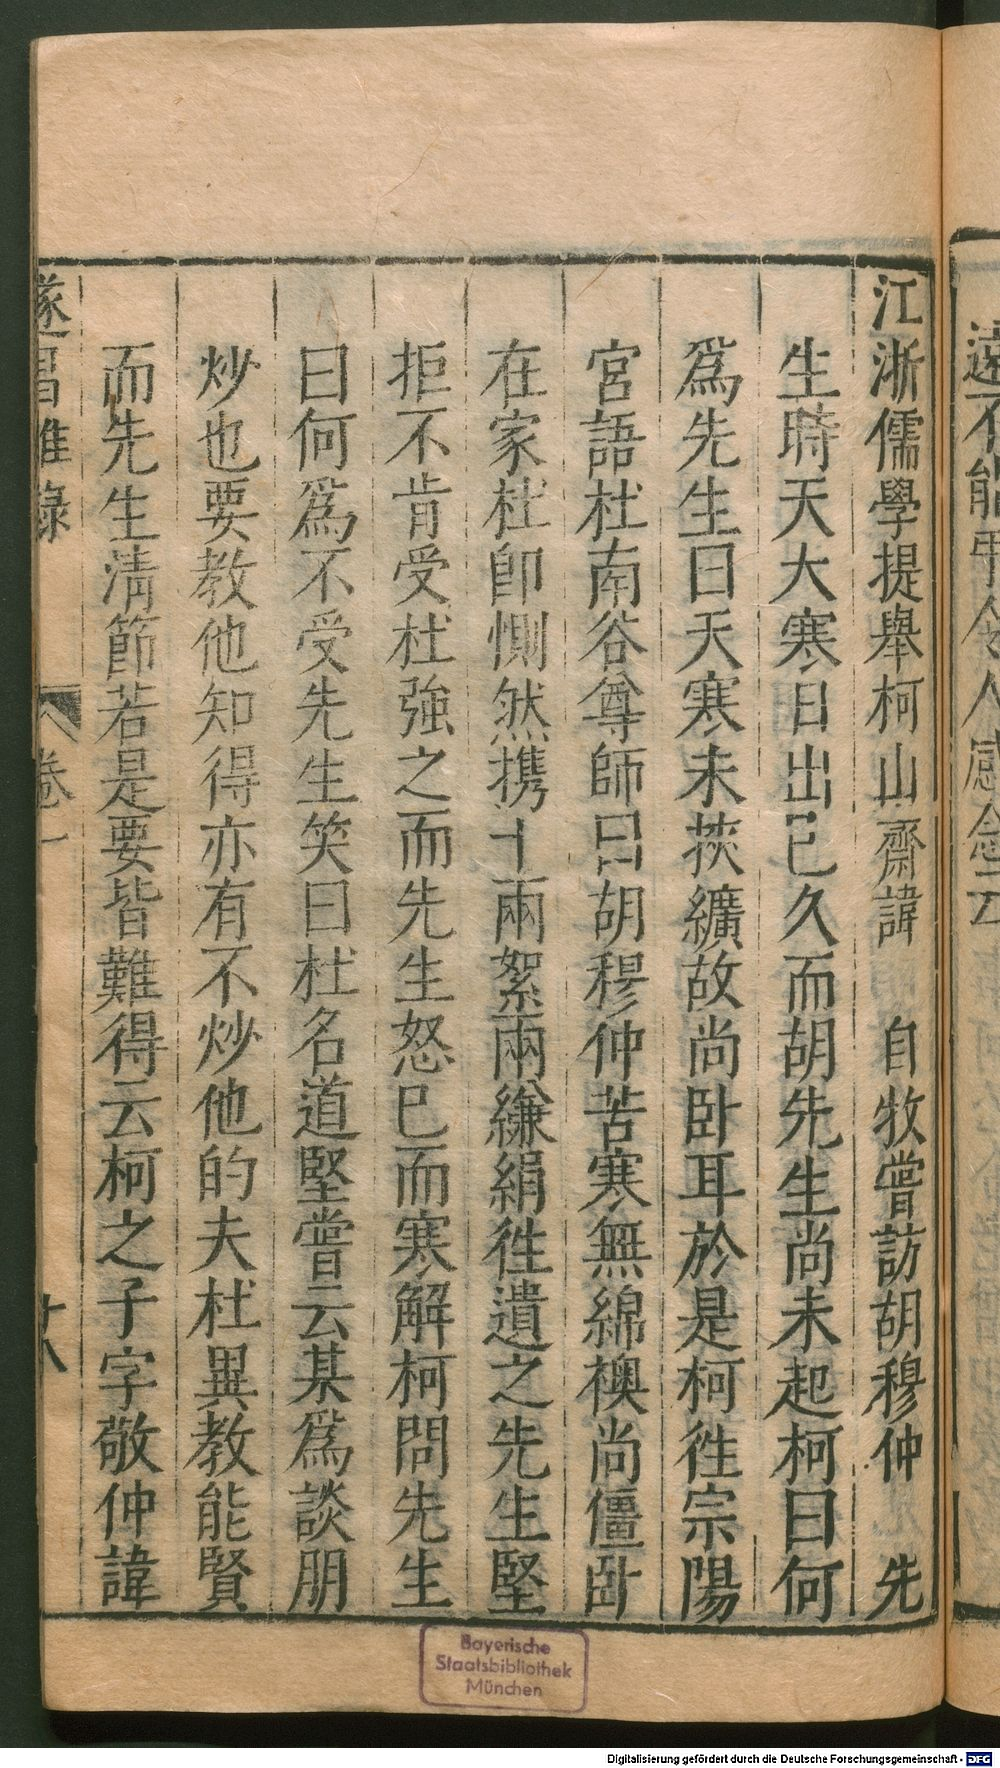 江浙儒學提舉柯山齋諱 自牧嘗訪胡穆仲 先
生時天大寒日出已久而胡先生尚未起柯曰何
爲先生曰天寒未挾纊故尚卧耳於是柯徃宗陽
宮語杜南谷尊師曰胡穆仲苦寒無綿襖尚僵卧
在家杜卽惻然携十兩絮兩縑絹徃遺之先生堅
拒不肯受杜強之而先生怒已而寒解柯問先生
曰何爲不受先生笑曰杜名道堅嘗云某爲談朋
炒也要教他知得亦有不炒他的夫杜異教能賢
而先生清節若是要皆難得云柯之子字敬仲諱
遂昌雜錄
卷一
Bayerische
Staatsbibliothek
München
Digitalisierung gefördert durch die Deutsche Forschungsgemeinschaft - DFG